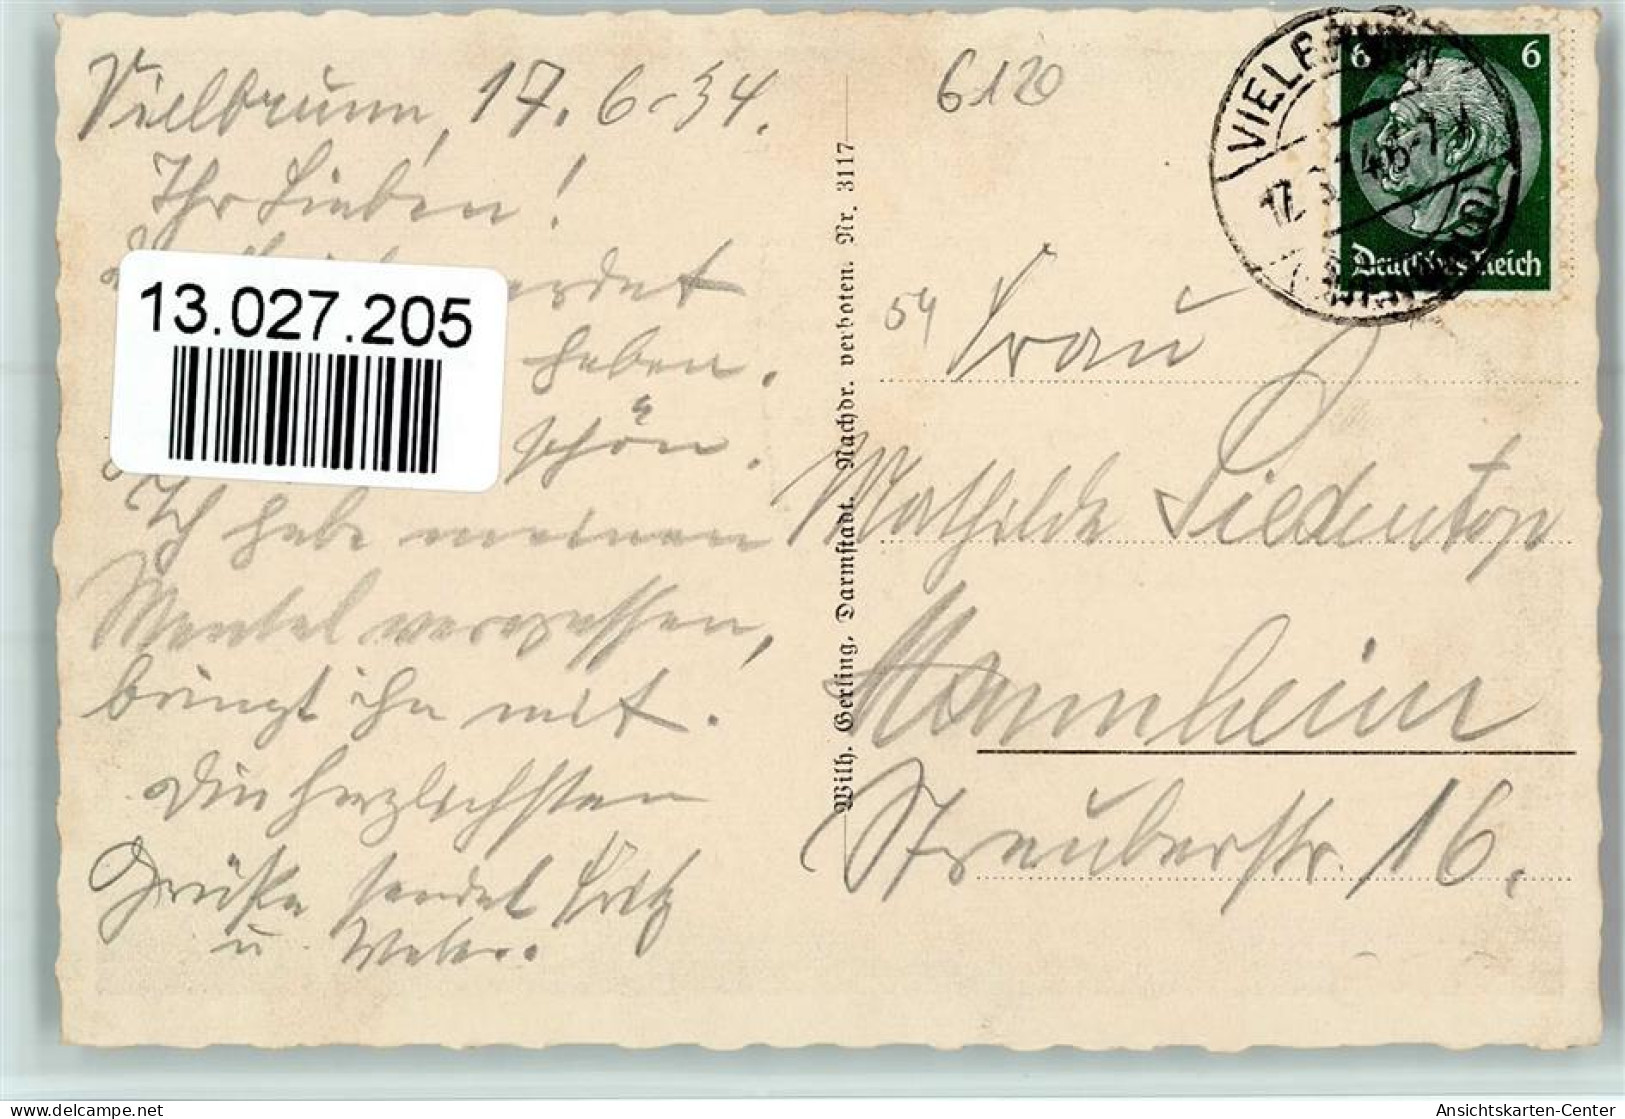 Vielbrunn, 17. 6. 34.
Ihr Lieben!
13.027.205
haben.
schön.
Ich habe meinen
Mantel vergessen,
bringt ihn mit.
Die herzlichsten
Grüße sendet Fritz
u.
Wilh. Gerling, Darmstadt. Nachdr. verboten. Nr. 3117
6120
VIELBRUNN
6 6
Deutsches Reich
54
Frau
Mathilde Siedentop
Mannheim
16.
delcampe.net
Ansichtskarten-Center